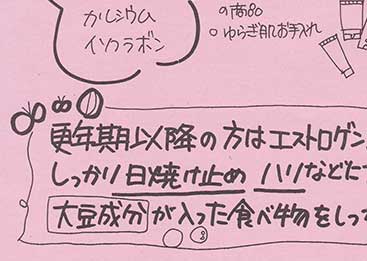 カルシウム
イソフラボン
の商品
○ゆらぎ肌お手入れ
更年期以降の方はエストロゲン
しっかり日焼け止め ハリなどた
大豆成分が入った食べ物をしっ